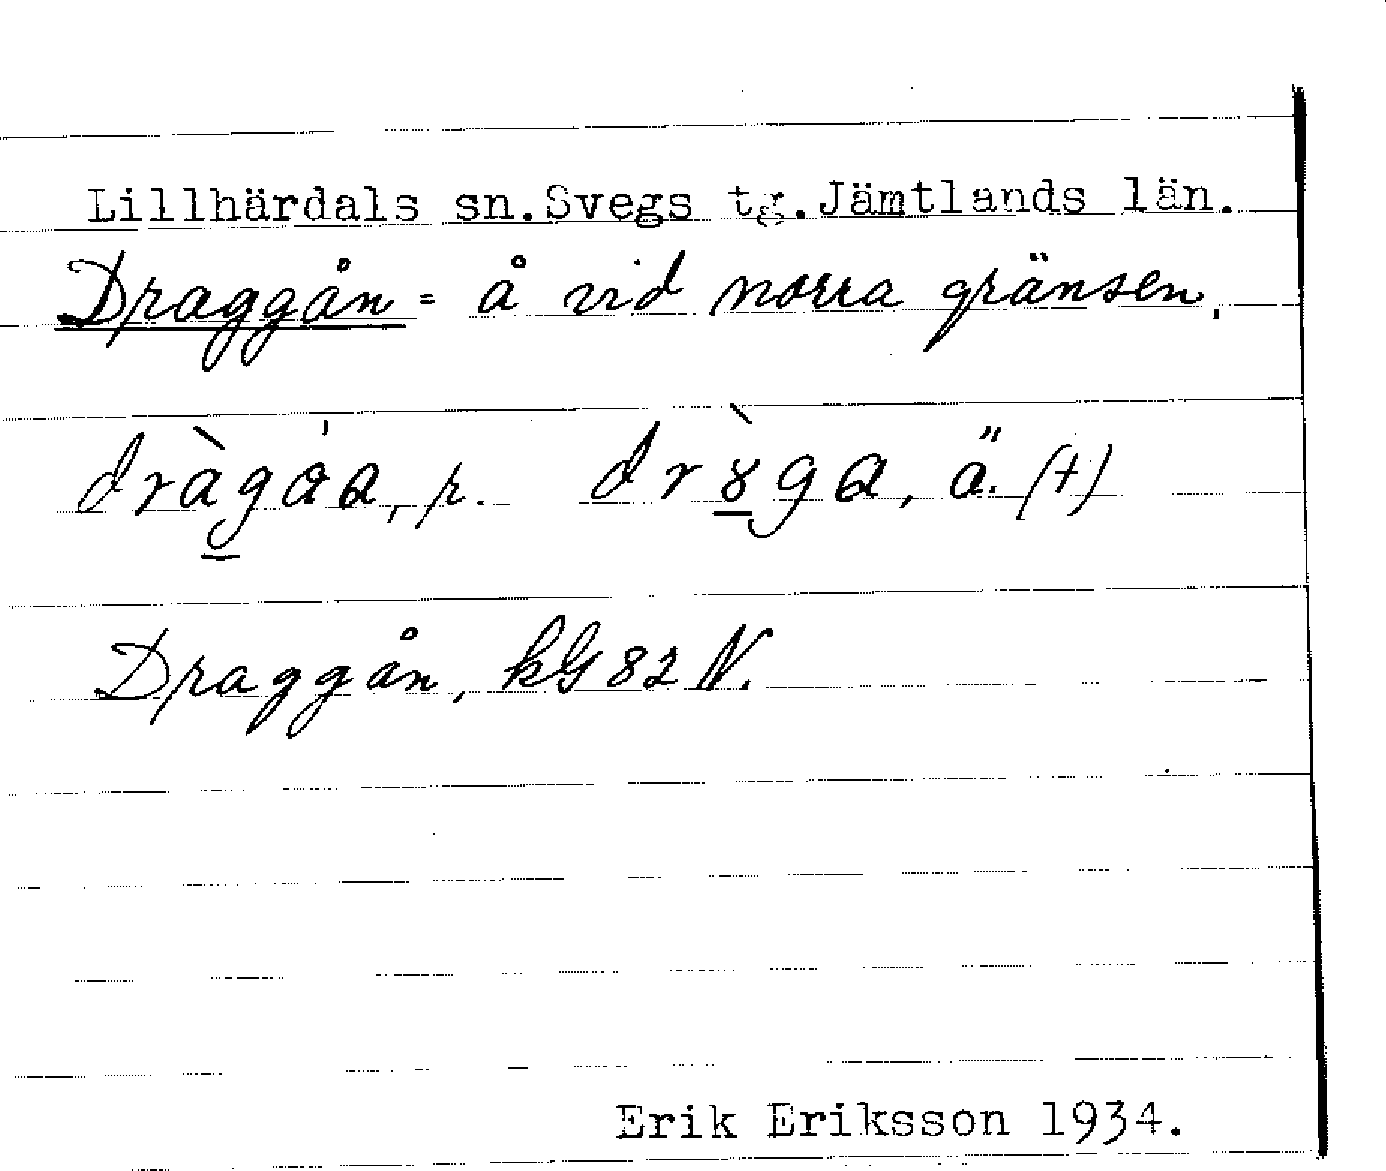 Lillhärdals sn. Svegs tg. Jämtlands län.
Draggån = å vid norra gränsen.
dràgåa, r. drɤ̀ga, ä. (†)
Draggån, kG 82 N.
Erik Eriksson 1934.